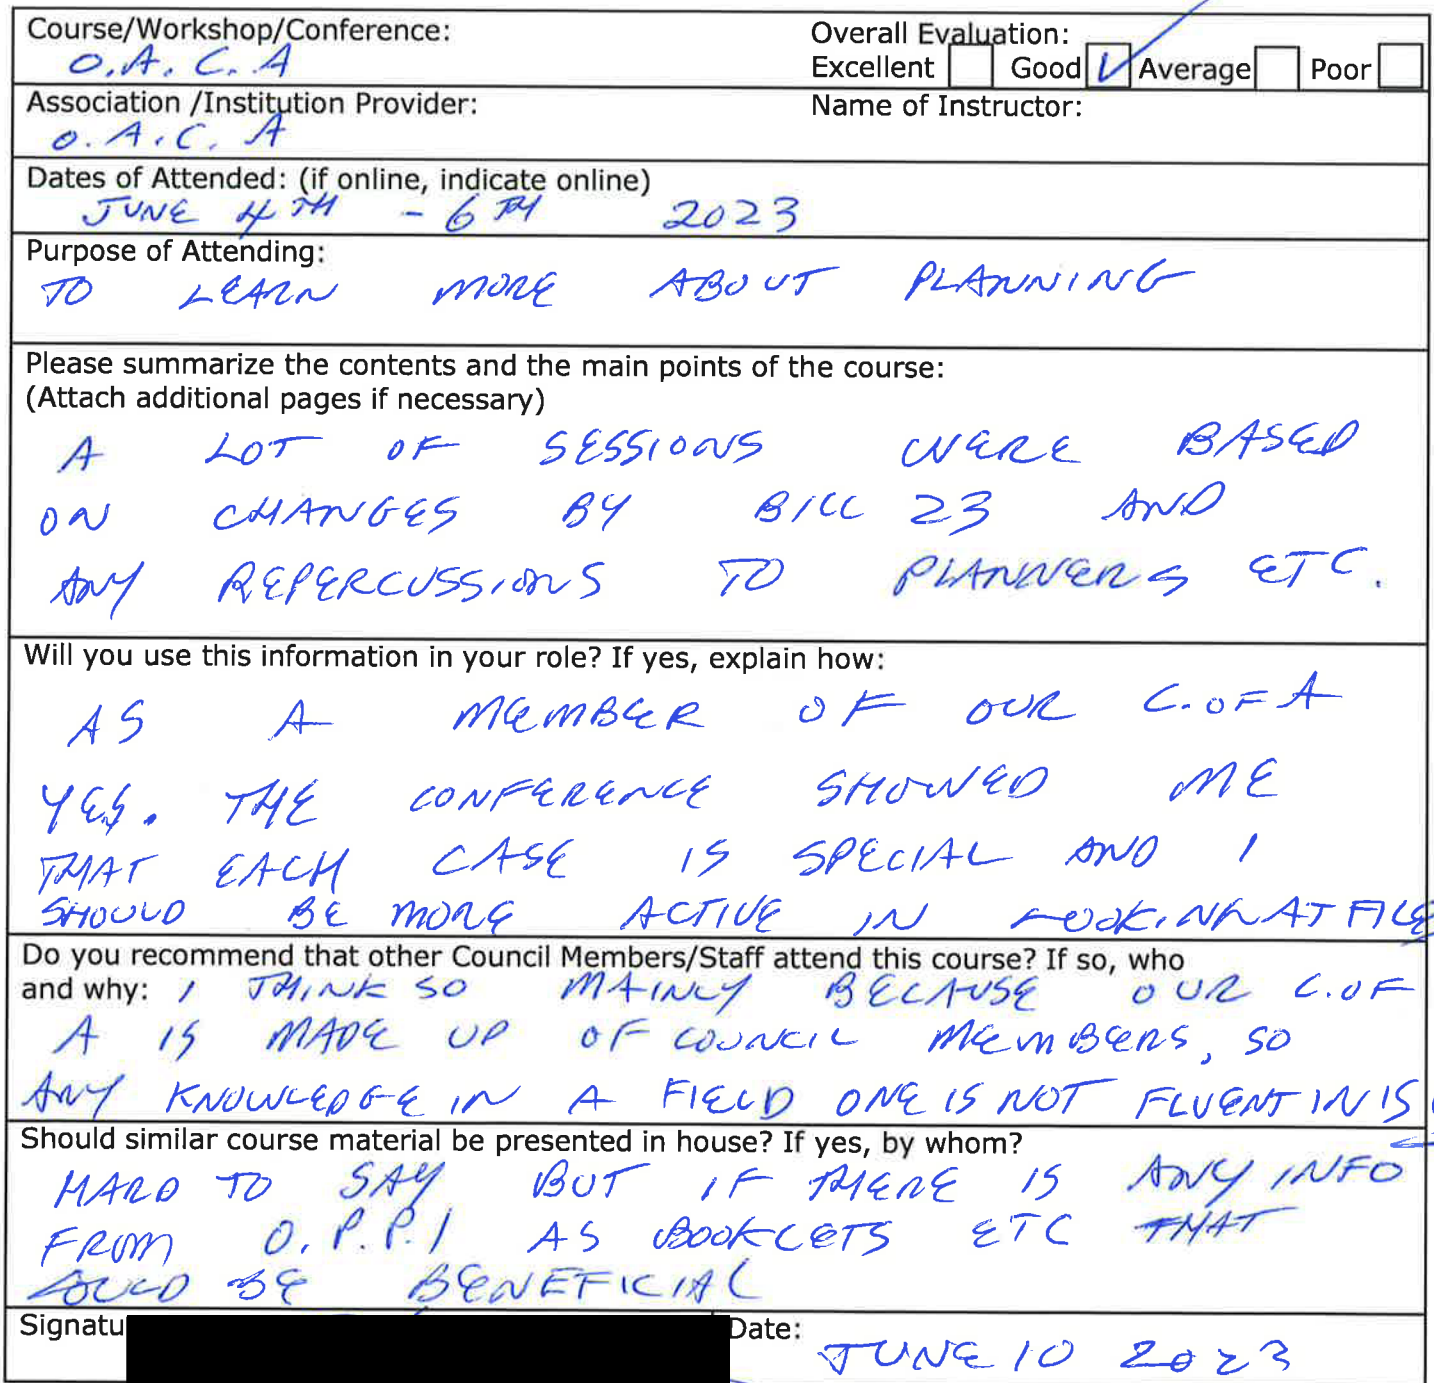 Course/Workshop/Conference:
O.A.C.A
Overall Evaluation:
Excellent Good Average Poor
Association /Institution Provider:
O.A.C.A
Name of Instructor:
Dates of Attended: (if online, indicate online)
JUNE 4TH - 6TH 2023
Purpose of Attending:
TO LEARN MORE ABOUT PLANNING
Please summarize the contents and the main points of the course:
(Attach additional pages if necessary)
A LOT OF SESSIONS WERE BASED
ON CHANGES BY BILL 23 AND
ANY REPERCUSSIONS TO PLANNERS ETC.
Will you use this information in your role? If yes, explain how:
AS A MEMBER OF OUR C.OFA
YES. THE CONFERENCE SHOWED ME
THAT EACH CASE IS SPECIAL AND I
SHOULD BE MORE ACTIVE IN LOOKING AT FILE
Do you recommend that other Council Members/Staff attend this course? If so, who
and why: I THINK SO MAINLY BECAUSE OUR C.OF
A IS MADE UP OF COUNCIL MEMBERS, SO
ANY KNOWLEDGE IN A FIELD ONE IS NOT FLUENT IN IS
Should similar course material be presented in house? If yes, by whom?
HARD TO SAY BUT IF THERE IS ANY INFO
FROM O.P.P.I AS BOOKLETS ETC THAT
BE BENEFICIAL
Signatu
Date:
JUNE 10 2023